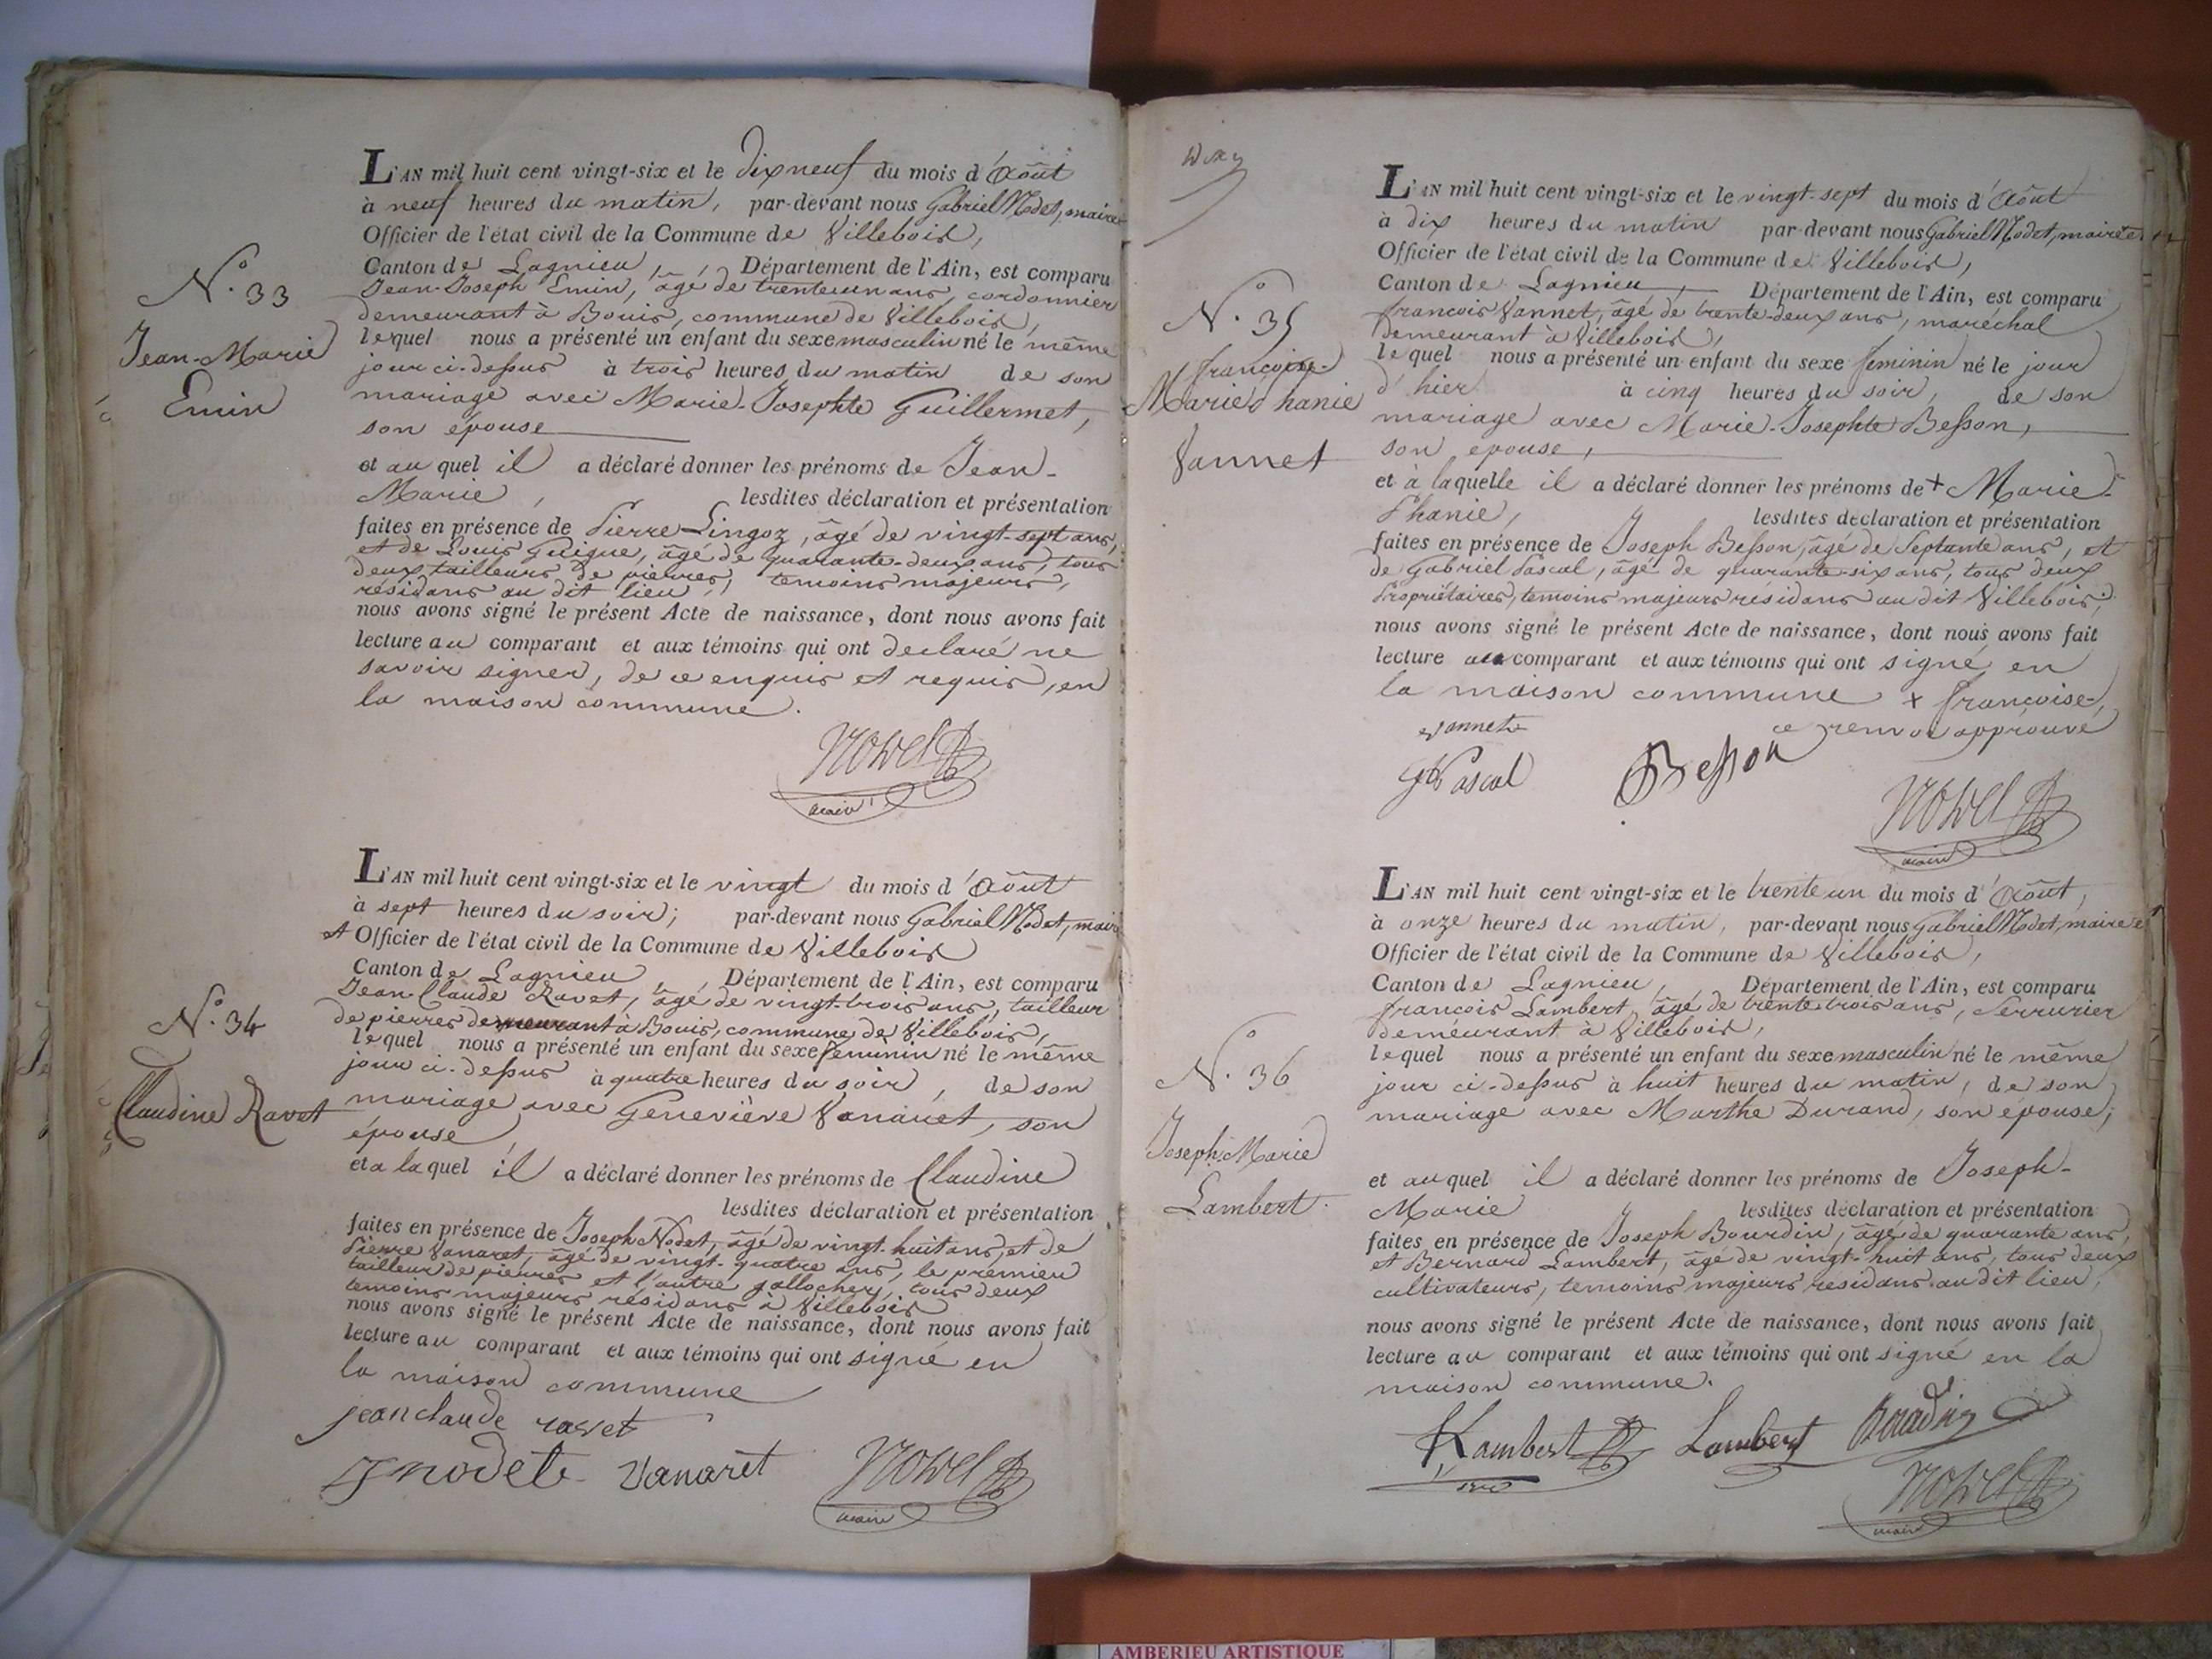 N.° 33
Jean-Marie
Emin
L'AN mil huit cent vingt-six et le dix neuf du mois d'Août
à neuf heures du matin, par-devant nous Gabriel Nodet, maire
Officier de l'état civil de la Commune de Villebois,
Canton de Lagnieu, Département de l'Ain, est comparu
Jean-Joseph Emin, âgé de trente un ans, cordonnier
demeurant à Bouis, commune de Villebois,
lequel nous a présenté un enfant du sexe masculin né le même
jour ci-dessus à trois heures du matin de son
mariage avec Marie-Josephte Guillermet,
son épouse
et au quel il a déclaré donner les prénoms de Jean-
Marie, lesdites déclaration et présentation
faites en présence de Pierre Lingoz, âgé de vingt-sept ans,
et de Louis Guigue, âgé de quarante-deux ans, tous
deux tailleurs de pierres, temoins majeurs,
résidans au dit lieu,
nous avons signé le présent Acte de naissance, dont nous avons fait
lecture au comparant et aux témoins qui ont declaré ne
savoir signer, de ce enquis et requis, en
la maison commune.
Nodet
maire
N.° 34
Claudine Ravet
L'AN mil huit cent vingt-six et le vingt du mois d'Août
à sept heures du soir; par-devant nous Gabriel Nodet, maire
et Officier de l'état civil de la Commune de Villebois
Canton de Lagnieu, Département de l'Ain, est comparu
Jean-Claude Ravet, âgé de vingt-trois ans, tailleur
de pierres demeurant à Bouis, commune de Villebois,
lequel nous a présenté un enfant du sexe feminin né le même
jour ci-dessus à quatre heures du soir, de son
mariage avec Geneviève Vanaret, son
épouse,
et a la quel il a déclaré donner les prénoms de Claudine
lesdites déclaration et présentation
faites en présence de Joseph Nodet, âgé de vingt-huit ans, et de
Pierre Vanaret, âgé de vingt-quatre ans, le premier
tailleur de pierres et l'autre gallocher, tous deux
temoins majeurs résidans à Villebois
nous avons signé le présent Acte de naissance, dont nous avons fait
lecture au comparant et aux témoins qui ont signé en
la maison commune
jean claude ravet
J nodet Vanaret Nodet
maire
N.° 35
françoise-
Marie Phanie
Vannet
L'AN mil huit cent vingt-six et le vingt-sept du mois d'Août
à dix heures du matin par-devant nous Gabriel Nodet, maire et
Officier de l'état civil de la Commune de Villebois,
Canton de Lagnieu, Département de l'Ain, est comparu
francois Vannet, âgé de trente-deux ans, maréchal
demeurant à Villebois,
lequel nous a présenté un enfant du sexe feminin né le jour
d'hier à cinq heures du soir, de son
mariage avec Marie-Josephte Besson,
son epouse,
et à laquelle il a déclaré donner les prénoms de + Marie-
Phanie, lesdites déclaration et présentation
faites en présence de Joseph Besson, âgé de Septante ans, et
de Gabriel Pascal, âgé de quarante-six ans, tous deux
Propriétaires, temoins majeurs résidans au dit Villebois,
nous avons signé le présent Acte de naissance, dont nous avons fait
lecture au comparant et aux témoins qui ont signé en
la maison commune + françoise-,
ce renvoi approuvé
vannet
G Pascal Besson
Nodet
maire
N.° 36
Joseph-Marie
Lambert.
L'AN mil huit cent vingt-six et le trente un du mois d'Août,
à onze heures du matin, par-devant nous Gabriel Nodet, maire et
Officier de l'état civil de la Commune de Villebois,
Canton de Lagnieu, Département de l'Ain, est comparu
francois Lambert, âgé de trente trois ans, Serrurier
demeurant à Villebois,
lequel nous a présenté un enfant du sexe masculin né le même
jour ci-dessus à huit heures du matin, de son
mariage avec Marthe Durand, son épouse,
et auquel il a déclaré donner les prénoms de Joseph-
Marie lesdites déclaration et présentation
faites en présence de Joseph Bourdin, âgé de quarante ans,
et Bernard Lambert, âgé de vingt-huit ans, tous deux
cultivateurs, temoins majeurs residans au dit lieu,
nous avons signé le présent Acte de naissance, dont nous avons fait
lecture au comparant et aux témoins qui ont signé en la
maison commune.
Lambert Lambert Bourdin
Nodet
maire
AMBERIEU ARTISTIQUE